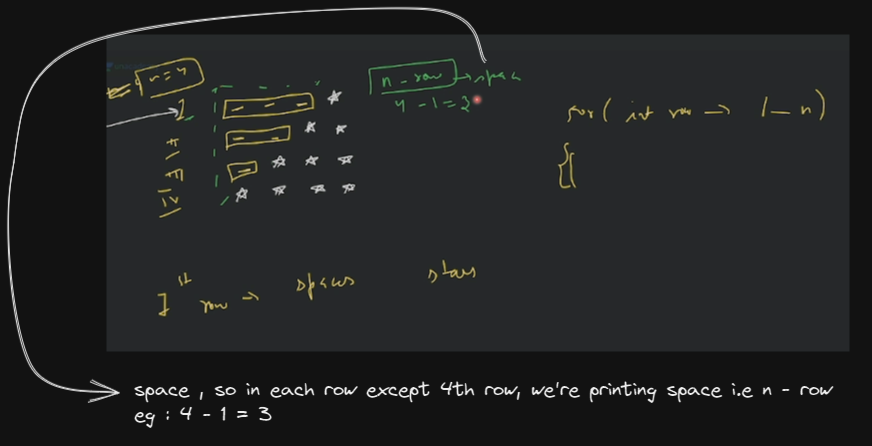 n = 4
n - row → space
4 - 1 = 3
I
II
III
IV
for ( int row → 1 — n )
{
1st row → spaces stars
space , so in each row except 4th row, we're printing space i.e n - row
eg : 4 - 1 = 3